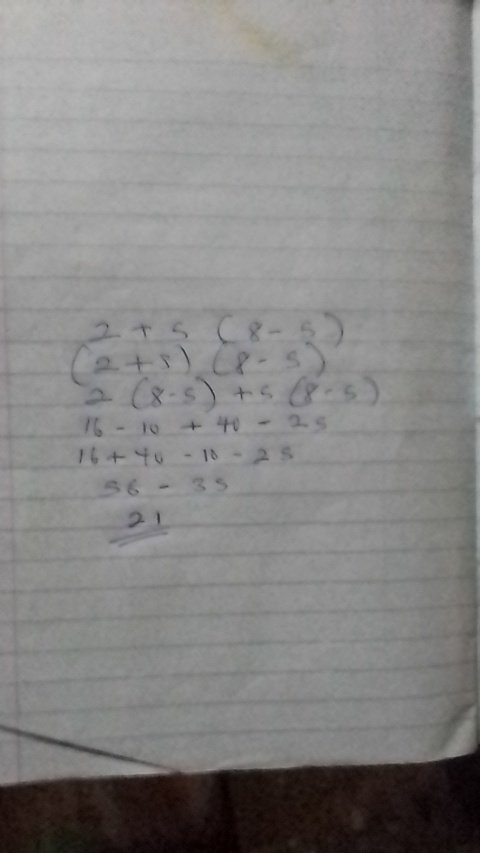 2 + 5 (8 - 5)
(2 + 5) (8 - 5)
2 (8 - 5) + 5 (8 - 5)
16 - 10 + 40 - 25
16 + 40 - 10 - 25
56 - 35
21